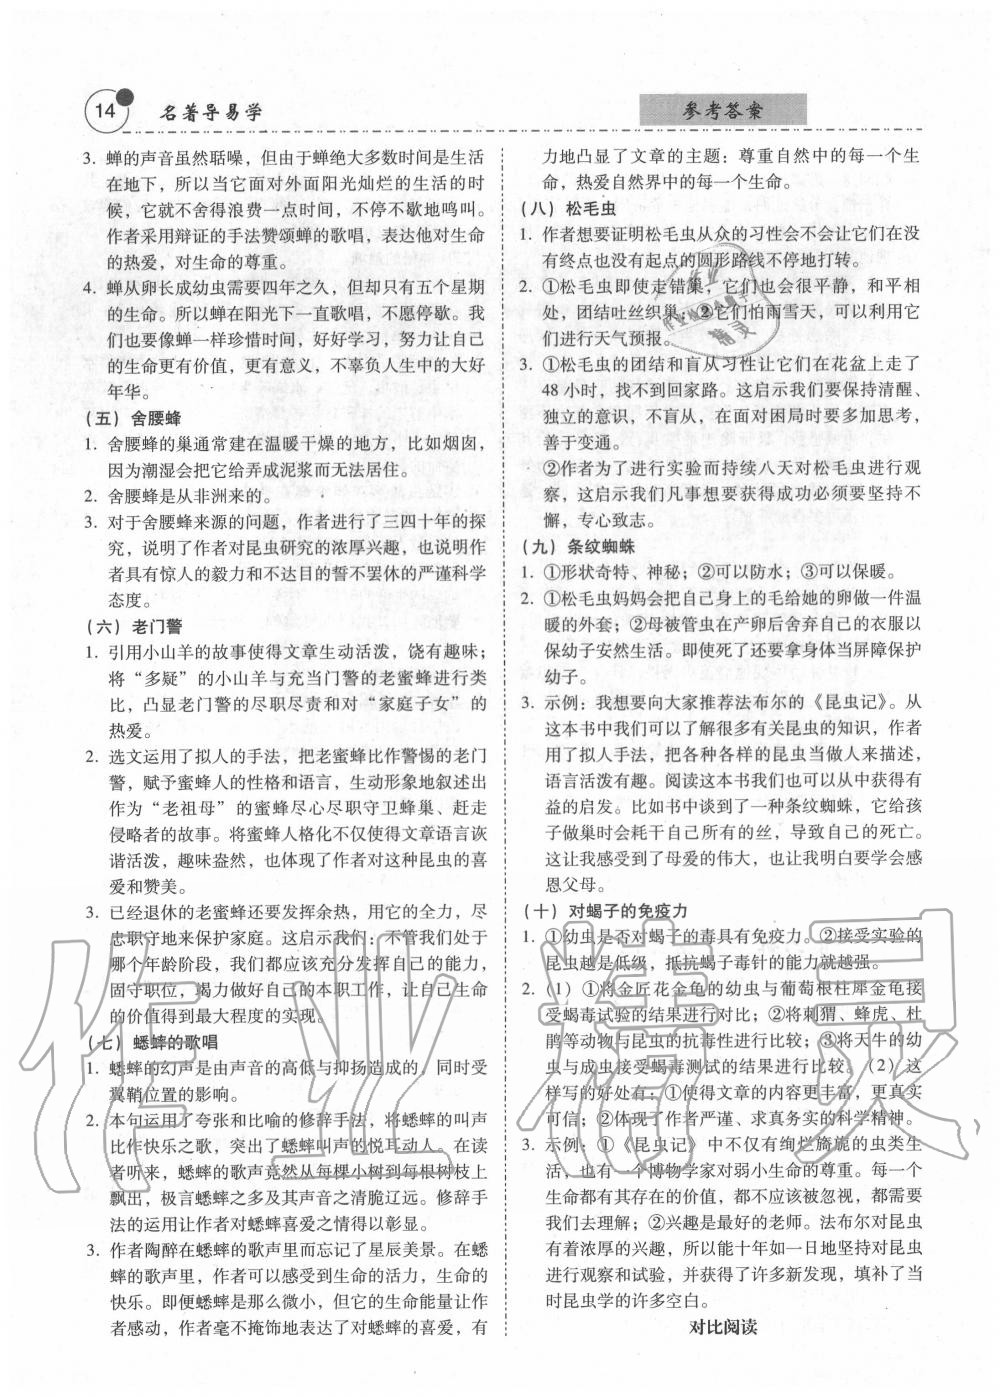 14
名著导易学
参考答案
3. 蝉的声音虽然聒噪，但由于蝉绝大多数时间是生活
在地下，所以当它面对外面阳光灿烂的生活的时
候，它就不舍得浪费一点时间，不停不歇地鸣叫。
作者采用辩证的手法赞颂蝉的歌唱，表达他对生命
的热爱，对生命的尊重。
4. 蝉从卵长成幼虫需要四年之久，但却只有五个星期
的生命。所以蝉在阳光下一直歌唱，不愿停歇。我
们也要像蝉一样珍惜时间，好好学习，努力让自己
的生命更有价值，更有意义，不辜负人生中的大好
年华。
（五）舍腰蜂
1. 舍腰蜂的巢通常建在温暖干燥的地方，比如烟囱，
因为潮湿会把它给弄成泥浆而无法居住。
2. 舍腰蜂是从非洲来的。
3. 对于舍腰蜂来源的问题，作者进行了三四十年的探
究，说明了作者对昆虫研究的浓厚兴趣，也说明作
者具有惊人的毅力和不达目的誓不罢休的严谨科学
态度。
（六）老门警
1. 引用小山羊的故事使得文章生动活泼，饶有趣味；
将“多疑”的小山羊与充当门警的老蜜蜂进行类
比，凸显老门警的尽职尽责和对“家庭子女”的
热爱。
2. 选文运用了拟人的手法，把老蜜蜂比作警惕的老门
警，赋予蜜蜂人的性格和语言，生动形象地叙述出
作为“老祖母”的蜜蜂尽心尽职守卫蜂巢、赶走
侵略者的故事。将蜜蜂人格化不仅使得文章语言诙
谐活泼，趣味盎然，也体现了作者对这种昆虫的喜
爱和赞美。
3. 已经退休的老蜜蜂还要发挥余热，用它的全力，尽
忠职守地来保护家庭。这启示我们：不管我们处于
哪个年龄阶段，我们都应该充分发挥自己的能力，
固守职位，竭力做好自己的本职工作，让自己生命
的价值得到最大程度的实现。
（七）蟋蟀的歌唱
1. 蟋蟀的幻声是由声音的高低与抑扬造成的，同时受
翼鞘位置的影响。
2. 本句运用了夸张和比喻的修辞手法，将蟋蟀的叫声
比作快乐之歌，突出了蟋蟀叫声的悦耳动人。在读
者听来，蟋蟀的歌声竟然从每棵小树到每根树枝上
飘出，极言蟋蟀之多及其声音之清脆辽远。修辞手
法的运用让作者对蟋蟀喜爱之情得以彰显。
3. 作者陶醉在蟋蟀的歌声里而忘记了星辰美景。在蟋
蟀的歌声里，作者可以感受到生命的活力，生命的
快乐。即便蟋蟀是那么微小，但它的生命能量让作
者感动，作者毫不掩饰地表达了对蟋蟀的喜爱，有
力地凸显了文章的主题：尊重自然中的每一个生
命，热爱自然界中的每一个生命。
（八）松毛虫
1. 作者想要证明松毛虫从众的习性会不会让它们在没
有终点也没有起点的圆形路线不停地打转。
2. ①松毛虫即使走错巢，它们也会很平静，和平相
处，团结吐丝织巢；②它们怕雨雪天，可以利用它
们进行天气预报。
3. ①松毛虫的团结和盲从习性让它们在花盆上走了
48 小时，找不到回家路。这启示我们要保持清醒、
独立的意识，不盲从，在面对困局时要多加思考，
善于变通。
②作者为了进行实验而持续八天对松毛虫进行观
察，这启示我们凡事想要获得成功必须要坚持不
懈，专心致志。
（九）条纹蜘蛛
1. ①形状奇特、神秘；②可以防水；③可以保暖。
2. ①松毛虫妈妈会把自己身上的毛给她的卵做一件温
暖的外套；②母被管虫在产卵后舍弃自己的衣服以
保幼子安然生活。即使死了还要拿身体当屏障保护
幼子。
3. 示例：我想要向大家推荐法布尔的《昆虫记》。从
这本书中我们可以了解很多有关昆虫的知识，作者
用了拟人手法，把各种各样的昆虫当做人来描述，
语言活泼有趣。阅读这本书我们可以从中获得有
益的启发。比如书中谈到了一种条纹蜘蛛，它给孩
子做巢时会耗干自己所有的丝，导致自己的死亡。
这让我感受到了母爱的伟大，也让我明白要学会感
恩父母。
（十）对蝎子的免疫力
1. ①幼虫是否对蝎子的毒具有免疫力。②接受实验的
昆虫越是低级，抵抗蝎子毒针的能力就越强。
2.（1）①将金匠花金龟的幼虫与葡萄根柱犀金龟接
受蝎毒试验的结果进行对比；②将刺猬、蜂虎、杜
鹃等动物与昆虫的抗毒性进行比较；③将天牛的幼
虫与成虫接受蝎毒测试的结果进行比较。（2）这
样写的好处有：①使得文章的内容更丰富，更真实
可信；②体现了作者严谨、求真务实的科学精神。
3. 示例：①《昆虫记》中不仅有绚烂旖旎的虫类生
活，也有一个博物学家对弱小生命的尊重。每一个
生命都有其存在的价值，都不应该被忽视，都需要
我们去理解；②兴趣是最好的老师。法布尔对昆虫
有着浓厚的兴趣，所以能十年如一日地坚持对昆虫
进行观察和试验，并获得了许多新发现，填补了当
时昆虫学的许多空白。
对比阅读
作业精灵